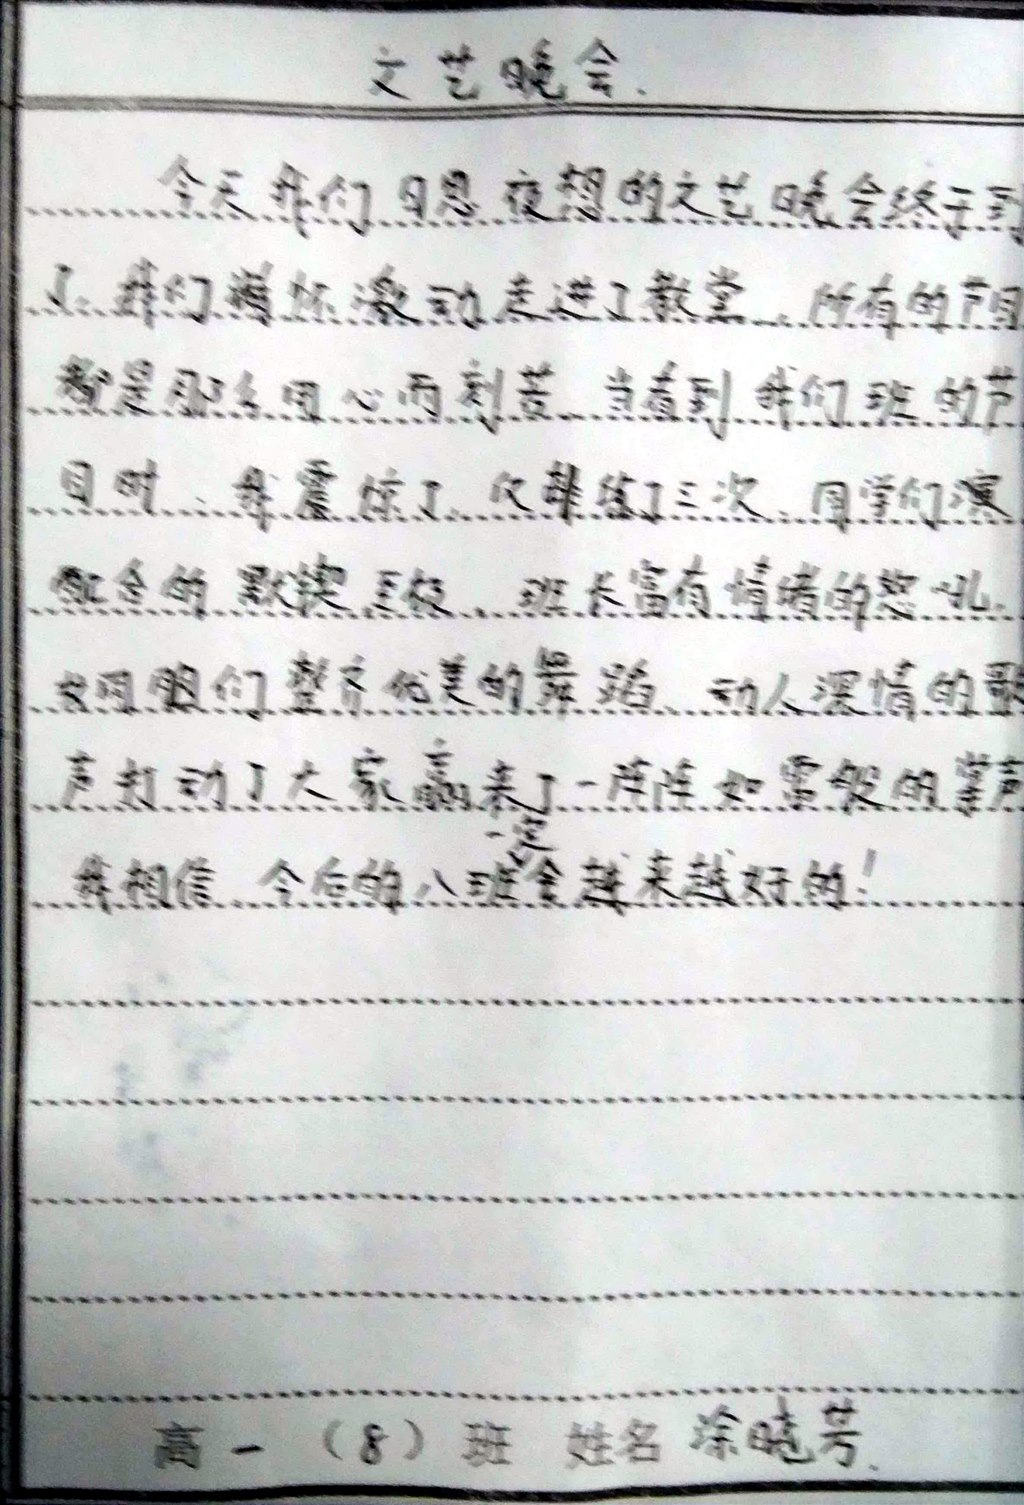 文艺晚会.
今天我们日思夜想的文艺晚会终于到
了，我们满怀激动走进了教堂，所有的节目
都是那么用心而刻苦，当看到我们班的节
目时，我震惊了，仅排练了三次，同学们演
配合的默契至极，班长富有情绪的怒吼，
女同胞们整齐优美的舞蹈，动人深情的歌
声打动了大家赢来了一阵阵如雷般的掌声
我相信，今后的八班一定会越来越好的！
高一（8）班 姓名 涂晓芳.